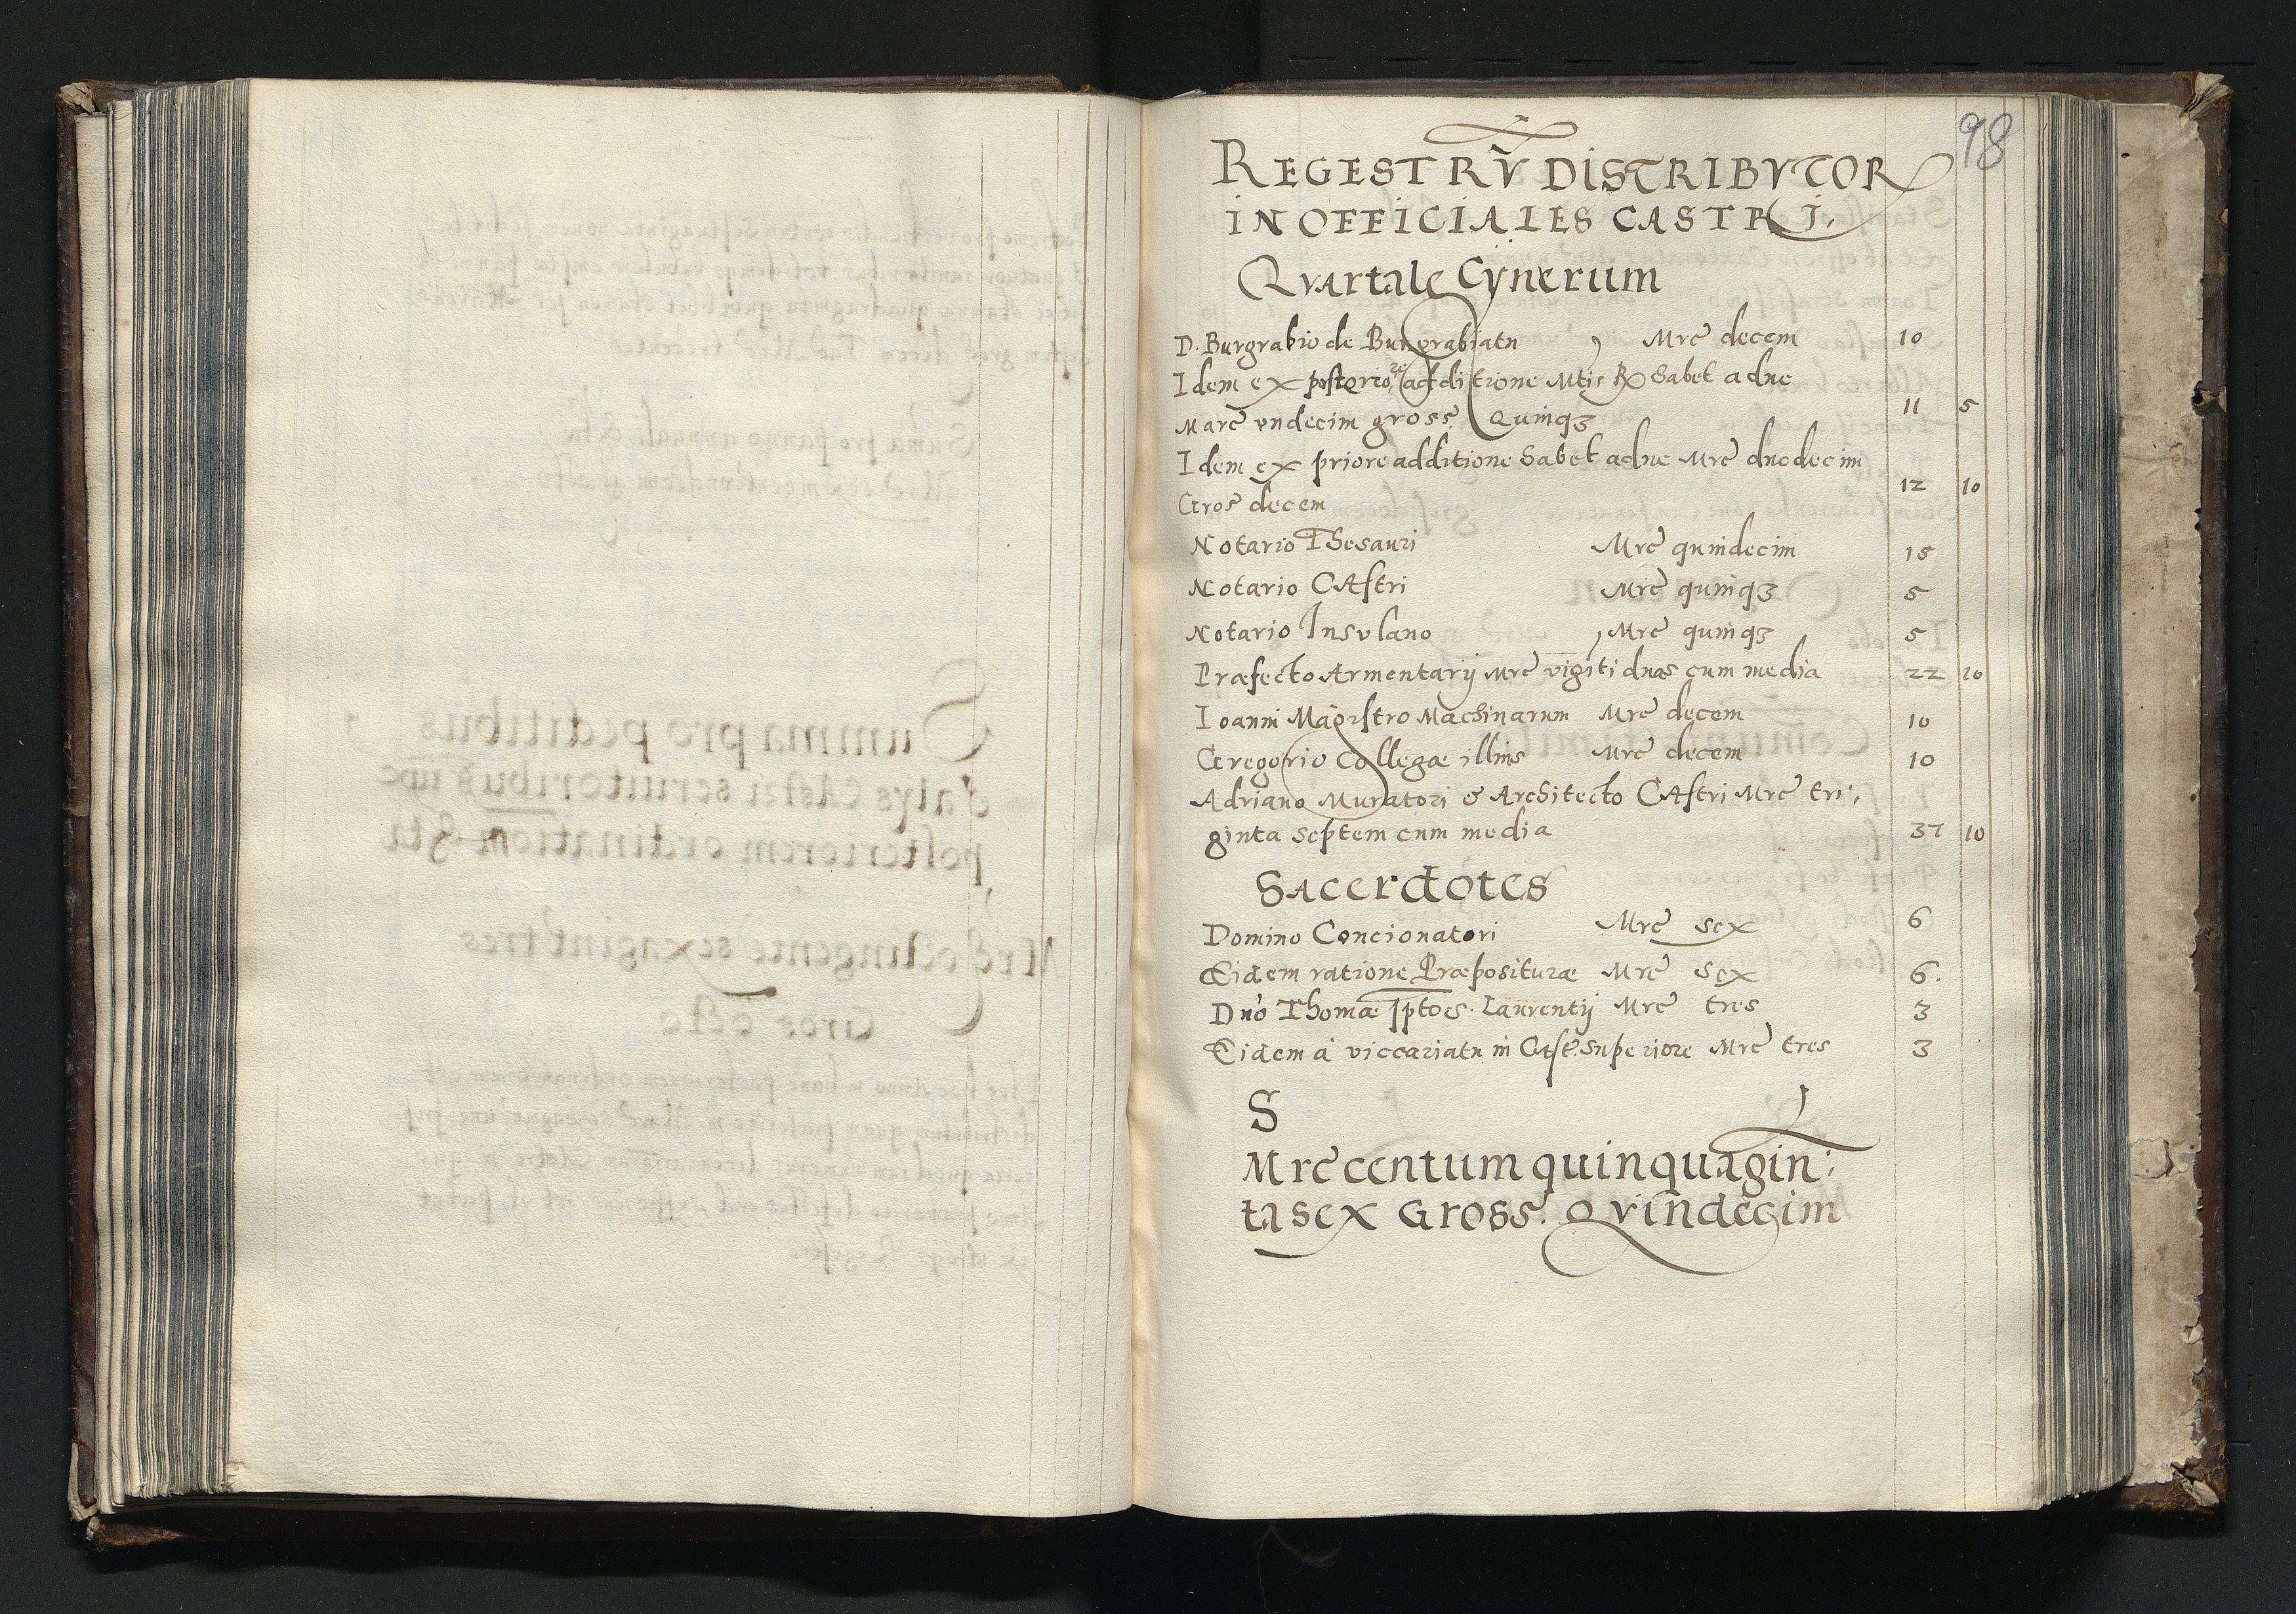 98
REGESTRṼ DISTRIBVTOR
IN OFFICIALES CASTRI.
Qvartale Cynerum
D. Burgrabio de Burgrabiatu Mrc̃ decem 10
Idem ex posteriore additione Mtis R habet adhuc
Marc̃ vndecim gross. Quinqꝫ 11 5
Idem ex priore additione habet adhuc Mrc̃ duodecim
Gros decem 12 10
Notario Thesauri Mrc̃ quindecim 15
Notario CAstri Mrc̃ quinqꝫ 5
Notario Insvlano Mrc̃ quinqꝫ 5
Præfecto Armentarij Mrc̃ vigiti duas cum media 22 10
Ioanni Magistro Machinarum Mrc̃ decem 10
Gregorio Collegæ illius Mrc̃ decem 10
Adriano Muratori & Architecto CAstri Mrc̃ tri:
ginta septem cum media 37 10
Sacerdotes
Domino Concionatori Mrc̃ sex 6
Eidem ratione Præposituræ Mrc̃ sex 6.
Dño Thomæ Laurentij Mrc̃ tres 3
Eidem à viccariatu in Cast. superiore Mrc̃ tres 3
S
Mrc̃ centum quinquagin:
ta sex Gross. Qvindecim